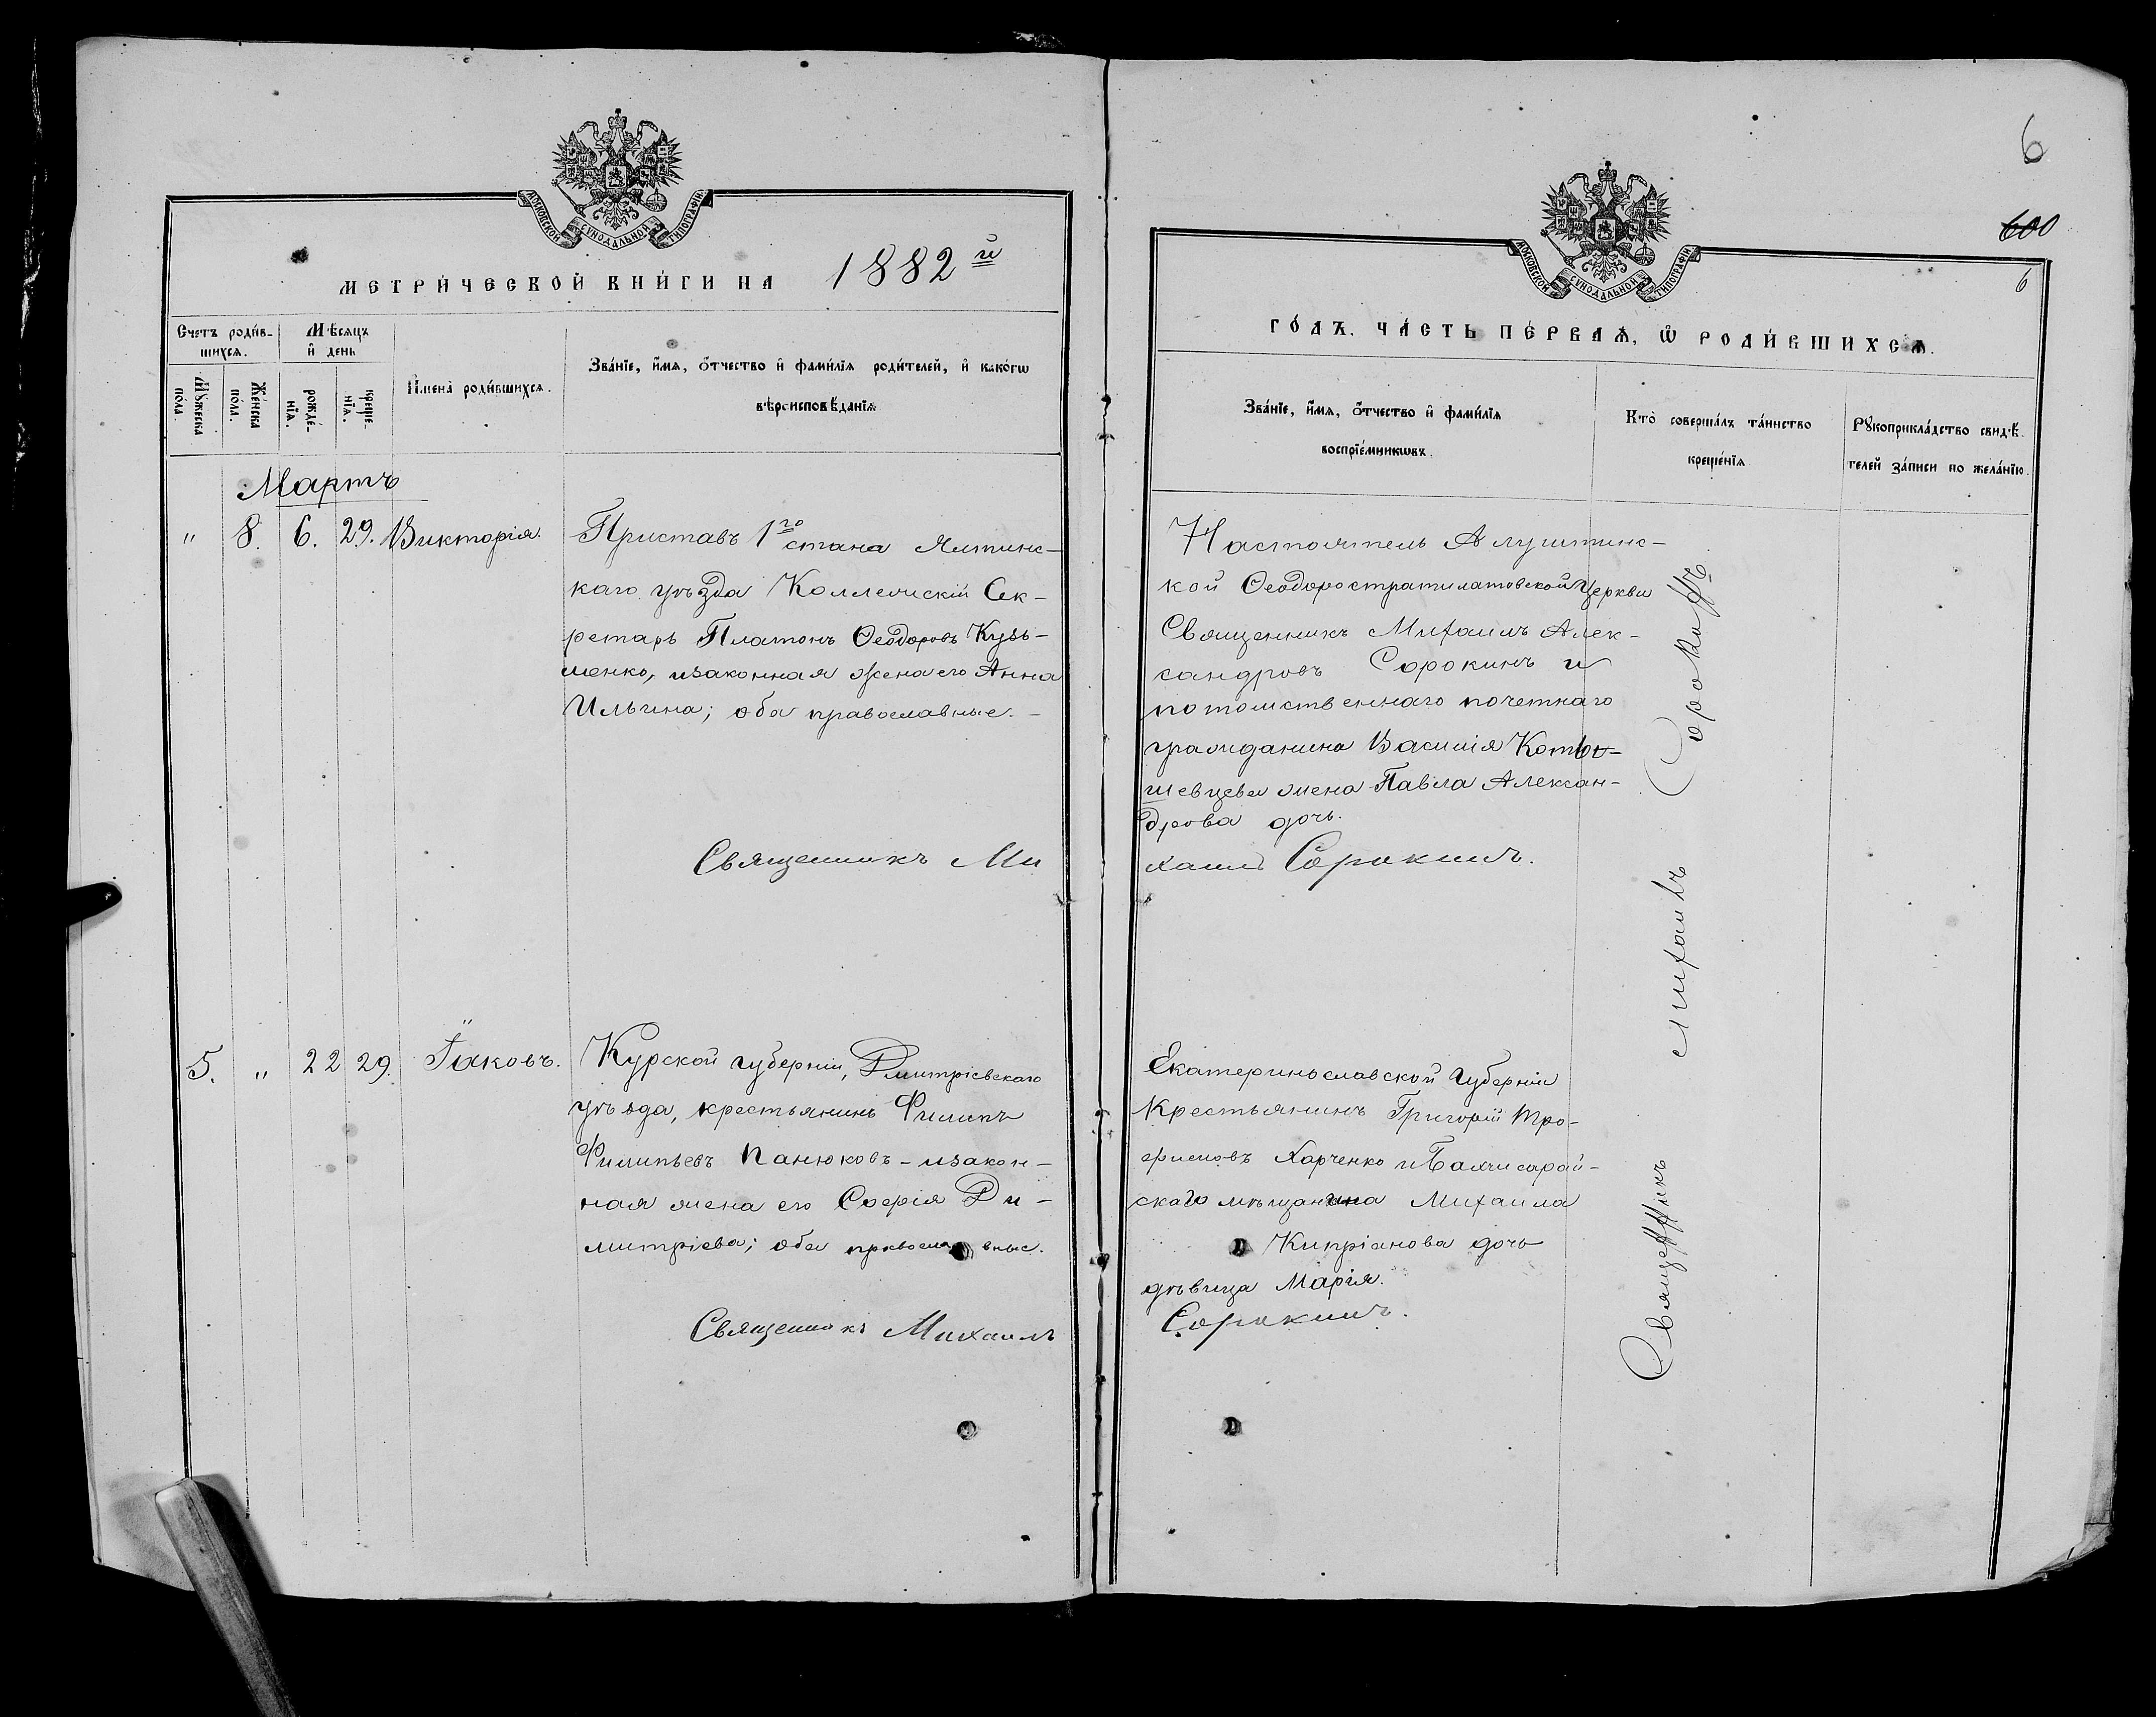 6
600
6
МОСКОВСКОЙ СѴНОДАЛЬНОЙ ТИПОГРАФІИ
МЕТРИ́ЧЕСКОЙ КНИ́ГИ НА 1882й
Счетъ роди́вшихся.
Мѣсяцъ и҆ день
Мꙋжеска по́ла.
Же́нска по́ла.
рожде́нїя.
креще́нїя.
И҆мена̀ роди́вшихся.
Зва́нїе, и҆́мя, ѻ҆́тчество и҆ фами́лїя роди́телей, и҆ како́гѡ
вѣроисповѣ́данїя
Мартъ
" 8. 6. 29. Викторія.
Приставъ 1го стана Ялтинс-
каго уѣзда Коллежскій Сек-
ретарь Платонъ Ѳеодоровъ Кузь-
менко, изаконная жена его Анна
Ильина; оба православные. –
Священникъ Ми
5. " 22 29. Іаковъ.
Курской губерніи, Дмитріевскаго
уѣзда, крестьянинъ Филипъ
Филипьевъ Панюковъ – изакон-
ная жена его Софія Ди-
митріева; оба православные.
Священникъ Михаилъ
МОСКОВСКОЙ СѴНОДАЛЬНОЙ ТИПОГРАФІИ
ГО́ДЪ. ЧА́СТЬ ПЕ́РВАѦ, Ѡ҆ РОДИ́ВШИХСѦ.
Зва́нїе, и҆́мя, ѻ҆́тчество и҆ фами́лїя
воспрїе́мникѡвъ.
Кто̀ соверша́лъ та́инство
креще́нїя
Рꙋкоприкла́дство свидѣ́-
телей за́писи по жела́нїю.
Настоятель Алуштинс-
кой Ѳеодоростратилатовской Церкви
Священникъ Михаилъ Алек-
сандровъ Сорокинъ и
потомственнаго почетнаго
гражданина Василія
шевцева жена Павла Алексан-
дрова дочь.
хаилъ Сорокинъ.
Екатеринославской Губерніи
Крестьянинъ Григорій Тро-
фимовъ Харченко и Бахчисарай-
скаго мѣщанина Михаила
Кипріанова дочь
дѣвица Марія.
Сорокинъ.
Священникъ Михаилъ Сорокинъ